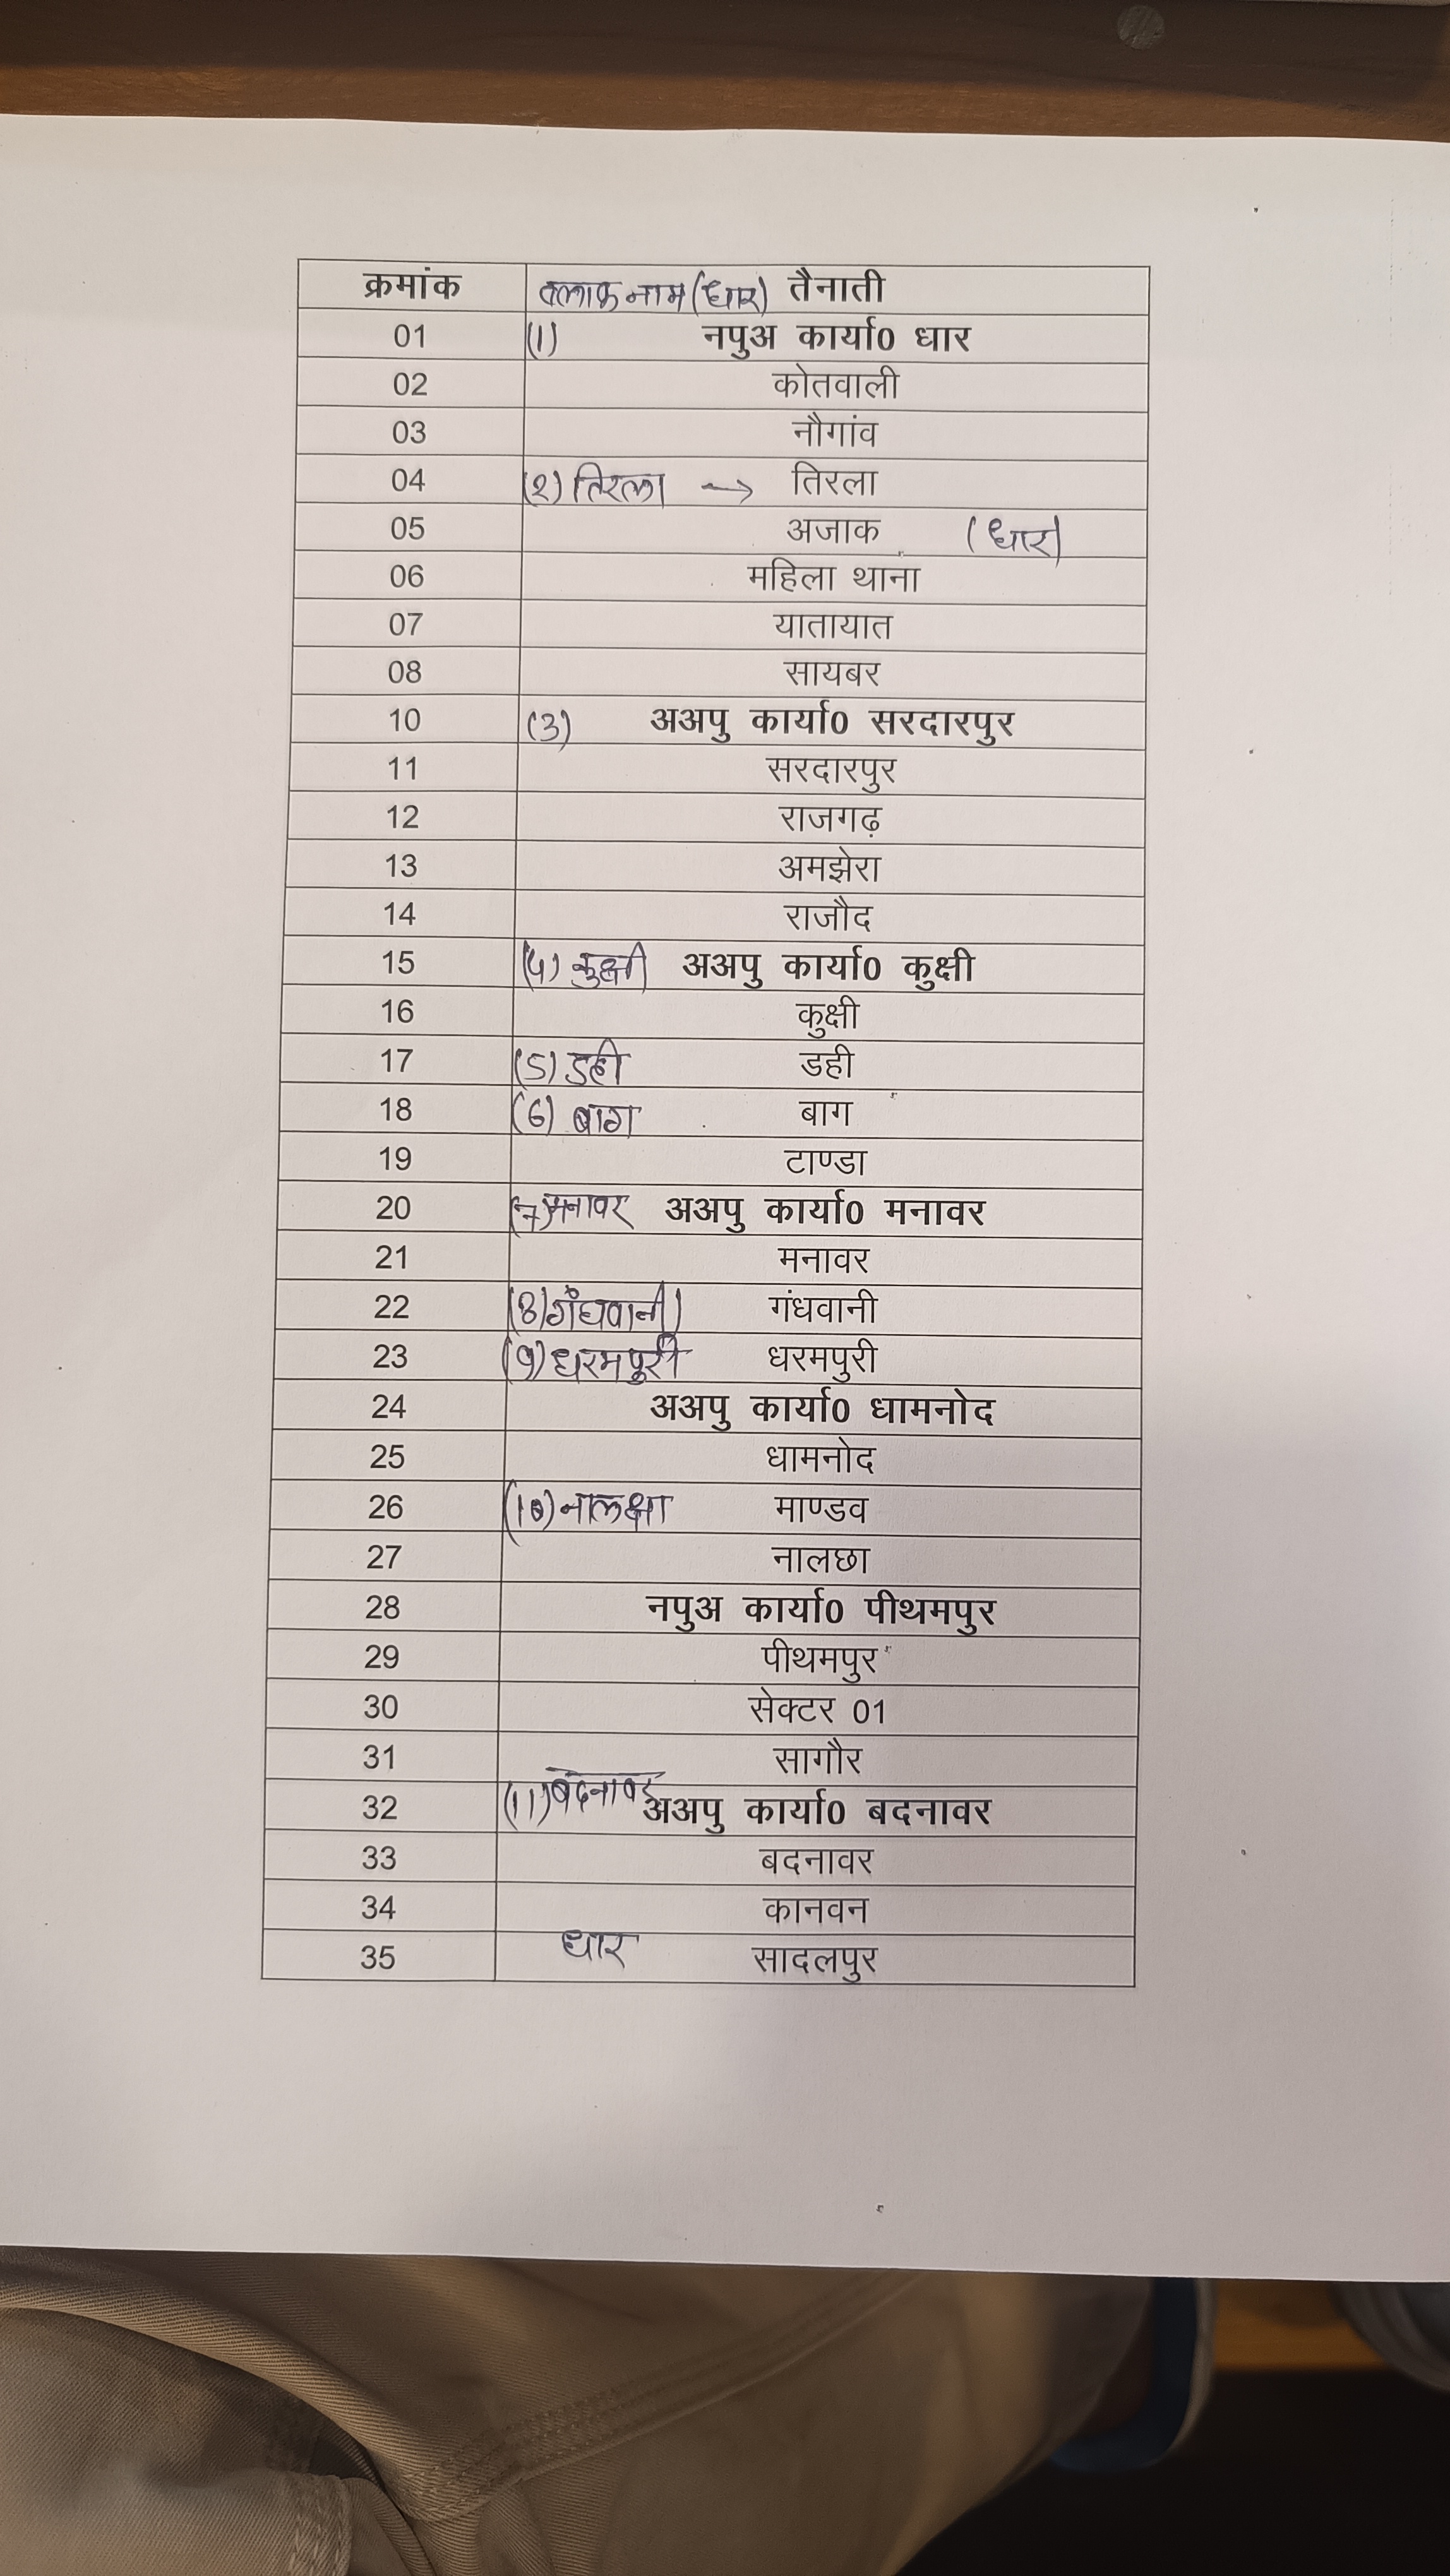 क्रमांक ब्लाक नाम (धार) तैनाती
01 (1) नपुअ कार्या0 धार
02 कोतवाली
03 नौगांव
04 (२) तिरला → तिरला
05 अजाक (धार)
06 महिला थाना
07 यातायात
08 सायबर
10 (3) अअपु कार्या0 सरदारपुर
11 सरदारपुर
12 राजगढ़
13 अमझेरा
14 राजौद
15 (4) कुक्षी अअपु कार्या0 कुक्षी
16 कुक्षी
17 (5) डही डही
18 (6) बाग बाग
19 टाण्डा
20 (7) मनावर अअपु कार्या0 मनावर
21 मनावर
22 (8) गंधवानी गंधवानी
23 (9) धरमपुरी धरमपुरी
24 अअपु कार्या0 धामनोद
25 धामनोद
26 (10) नालक्षा माण्डव
27 नालछा
28 नपुअ कार्या0 पीथमपुर
29 पीथमपुर
30 सेक्टर 01
31 सागौर
32 (11) बदनावर अअपु कार्या0 बदनावर
33 बदनावर
34 कानवन
35 धार सादलपुर